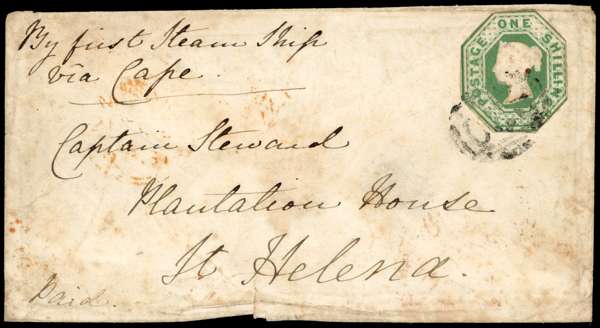 By first Steam Ship
via Cape.
POSTAGE ONE SHILLING
Captain Steward
Plantation House
St Helena.
Paid.